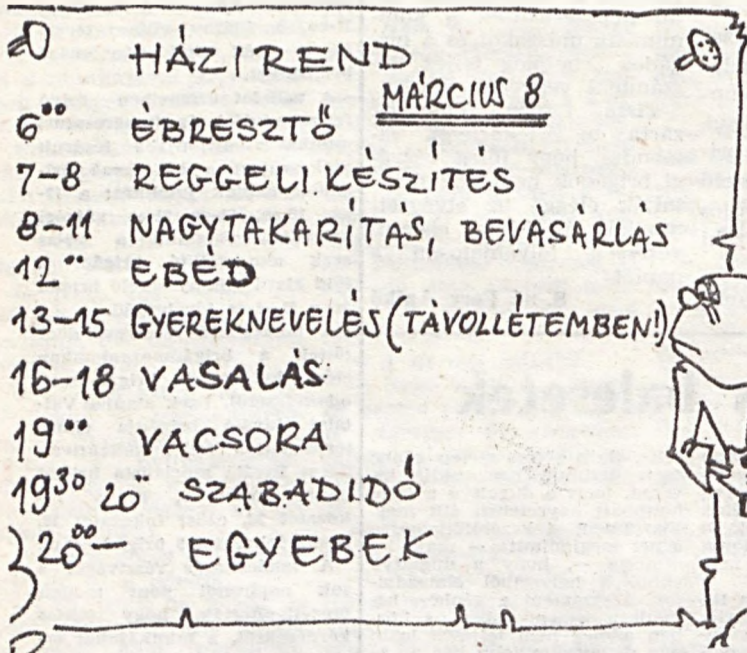 HÁZI REND
MÁRCIUS 8
6°° ÉBRESZTŐ
7-8 REGGELI KÉSZÍTÉS
8-11 NAGYTAKARITÁS, BEVÁSÁRLÁS
12°° EBÉD
13-15 GYEREKNEVELÉS (TÁVOLLÉTEMBEN!)
16-18 VASALÁS
19°° VACSORA
19³⁰ 20°° SZABADIDŐ
20°°— EGYEBEK